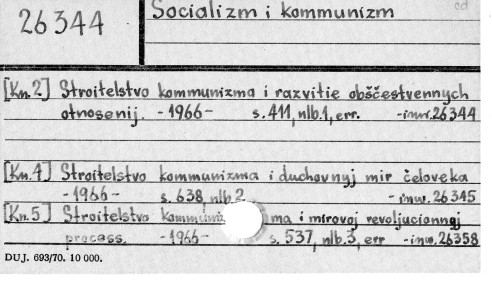 26344
Socializm i kommunizm
cd
[Kn.2] Stroitelstvo kommunizma i razvitie obščestvennych
otnosenij. -1966- s.411, nlb.1, err. -inw.26344
[Kn.4] Stroitelstvo kommunizma i duchovnyj mir čeloveka
-1966- s.638, nlb.2 -inw.26345
[Kn.5] Stroitelstvo ma i mirovoj revoljucionnej
process. -1966- s.537, nlb.3, err -inw.26358
DUJ. 693/70. 10 000.